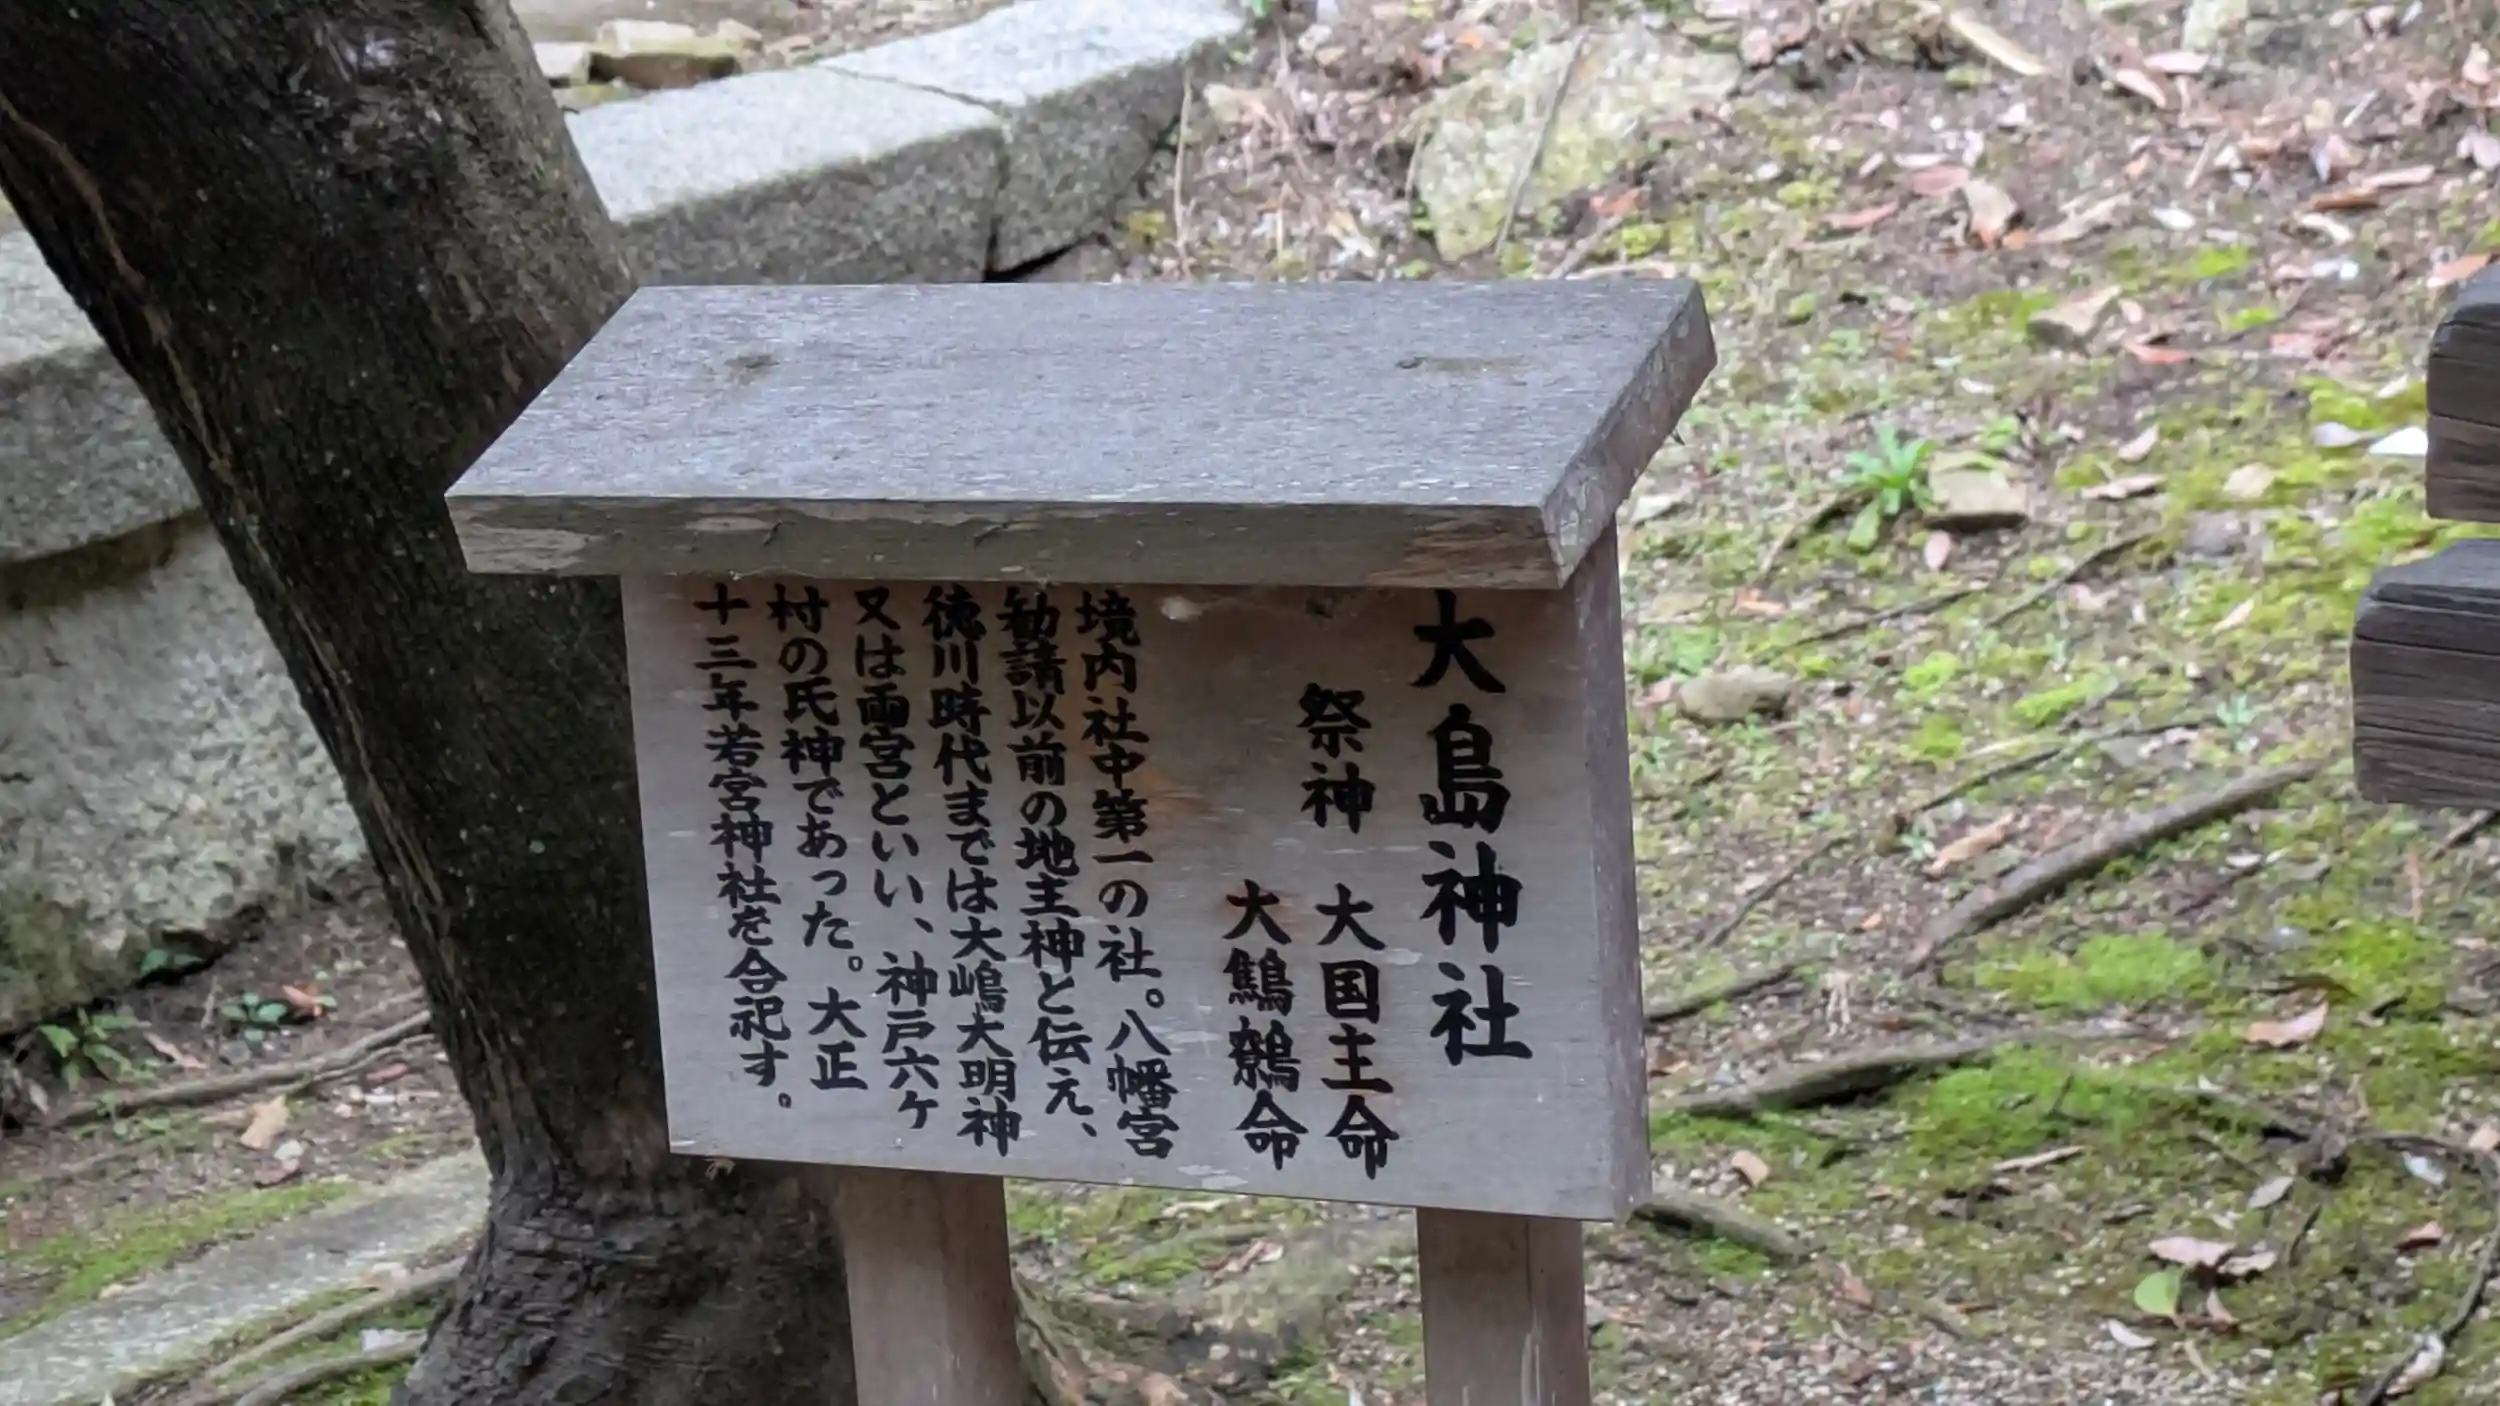 大島神社
祭神 大国主命
大鷦鷯命
境内社中第一の社。八幡宮
勧請以前の地主神と伝え、
徳川時代までは大嶋大明神
又は両宮といい、神戸六ヶ
村の氏神であった。大正
十三年若宮神社を合祀す。